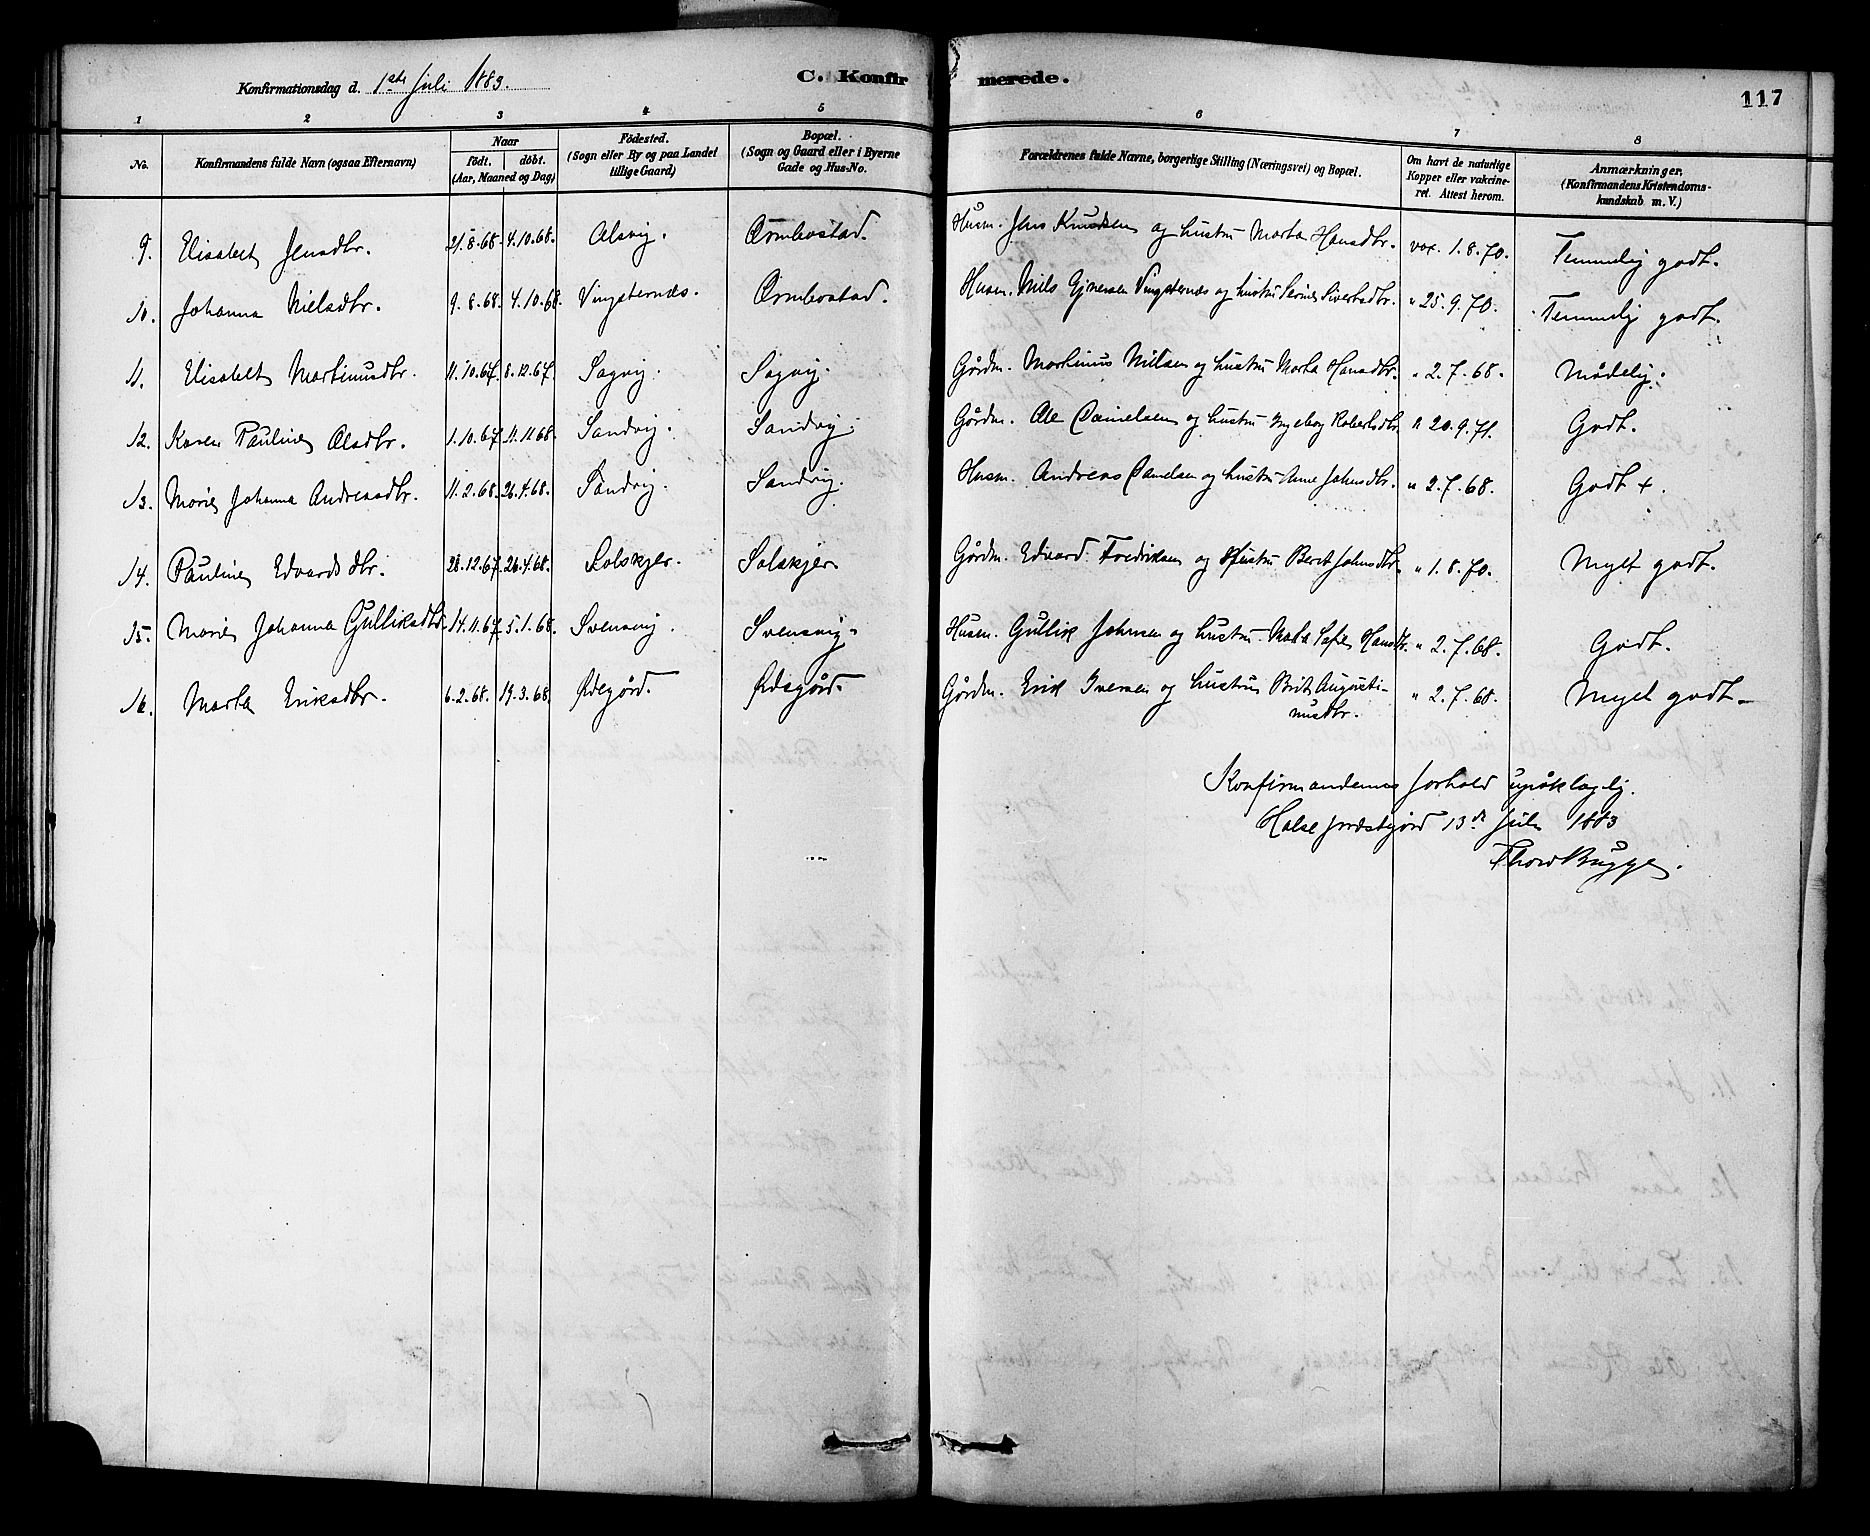 Konfirmationsdag d. 1ste Juli 1883.
C. Konfirmerede.
117
1 2 3 4 5 6 7 8
No.
Konfirmandens fulde Navn (ogsaa Efternavn)
Naar
födt. döbt.
(Aar, Maaned og Dag)
Födested.
(Sogn eller By og paa Landet
tillige Gaard)
Bopæl.
(Sogn og Gaard eller i Byerne
Gade og Hus-No.
Forældrenes fulde Navne, borgerlige Stilling (Næringsvei) og Bopæl.
Om havt de naturlige
Kopper eller vakcine-
ret. Attest herom.
Anmærkninger.
(Konfirmandens Kristendoms-
kundskab m. V.)
9. Elisabet Jensdtr. 21.8.68. 4.10.68. Alsvig. Ormbostad. Husm. Jens Knudsen og hustru Marta Hansdtr. vax. 1.8.70. Temmelig godt.
10. Johanna Nielsdtr. 9.8.68. 4.10.68. Vingsternæs. Ormbostad. Husm. Nils Vingsternæs og hustru Sivertsdtr. " 25.9.70. Temmelig godt.
11. Elisabet Martinusdtr. 11.10.67. 8.12.67. Sagvig. Sagvig. Gårdm. Martinus Nilsen og hustru Marta Hansdtr. " 2.7.68. Mådelig.
12. Karen Pauline Olsdtr. 1.10.67. 11.11.68. Sandvig. Sandvig. Gårdm. Ole Danielsen og hustru Ingeborg Robertsdtr. " 20.9.71. Godt.
13. Marie Johanna Andreasdtr. 11.2.68. 26.4.68. Sandvig. Sandvig. Husm. Andreas Danielsen og hustru Anne Johnsdtr. " 2.7.68. Godt +.
14. Pauline Edvardsdtr. 28.12.67. 26.4.68. Solskjer. Solskjer. Gårdm. Edvard Fredriksen og Hustru Berit Johnsdtr. " 1.8.70. Myet godt.
15. Marie Johanna Gulliksdtr. 14.11.67. 5.1.68. Svensvig. Svensvig. Husm. Gullik Johnsen og hustru Marta Hansdtr. " 2.7.68. Godt.
16. Marta Eriksdtr. 6.2.68. 19.3.68. Ødegård. Ødegård. Gårdm. Erik Iversen og hustru Brit Augusti-
nusdtr. " 2.7.68. Myet godt.
Konfirmandernes forhold upåklagelig.
Halse præstegård 13de Juli 1883
Thorv Bugge.